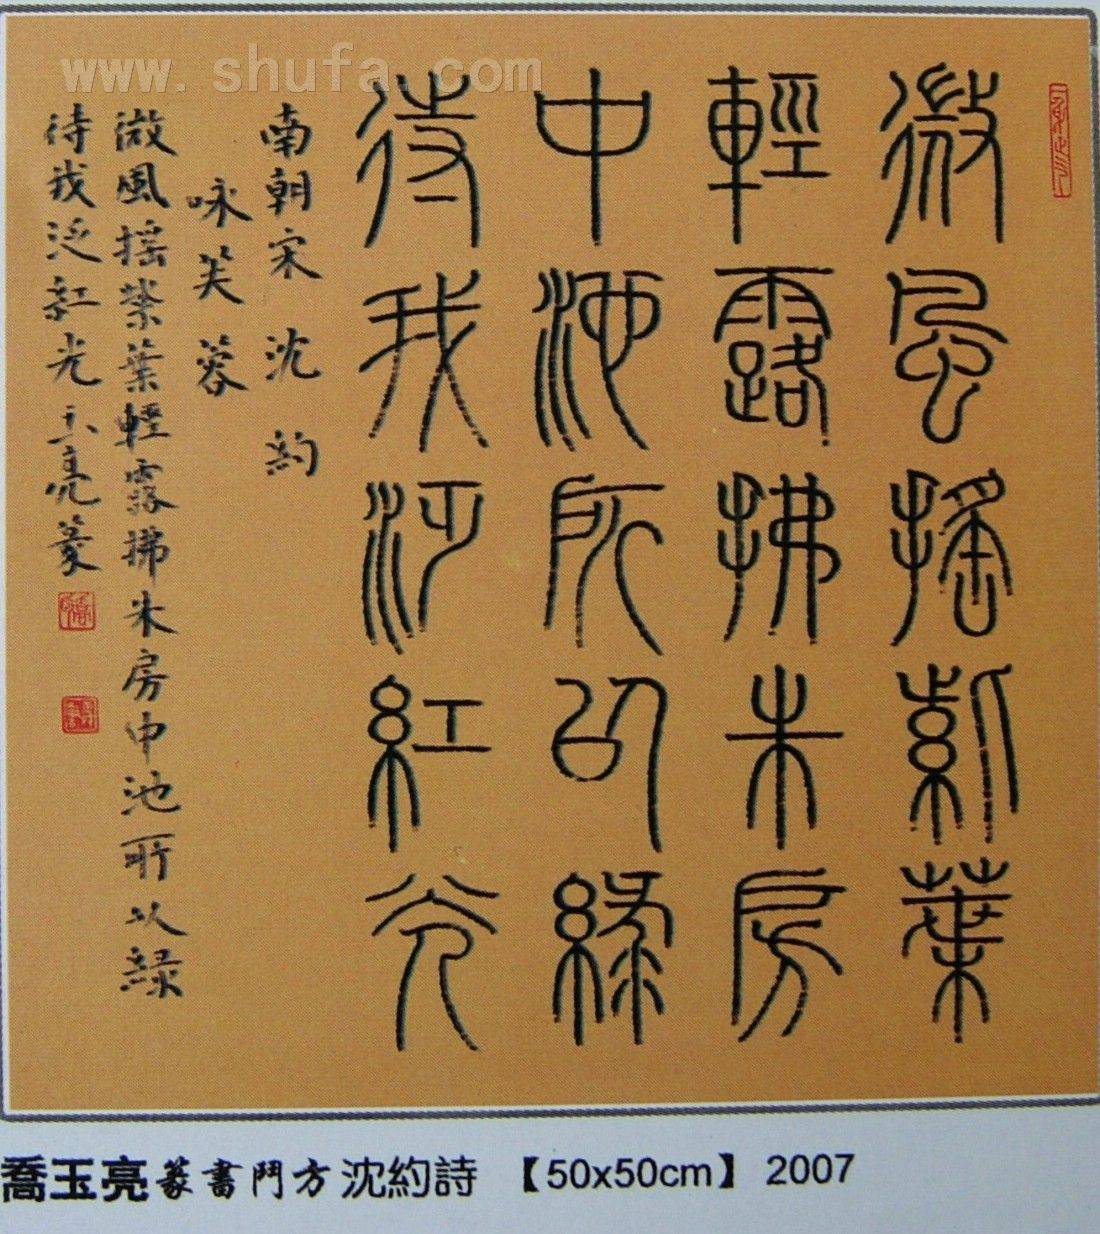 www.shufa.com
微風搖紫葉
輕露拂朱房
中池所以綠
待我泛紅光
南朝宋 沈約
咏芙蓉
微風搖紫葉輕露拂朱房中池所以綠
待我泛紅光 玉亮篆
喬玉亮篆書鬥方沈約詩 【50x50cm】 2007